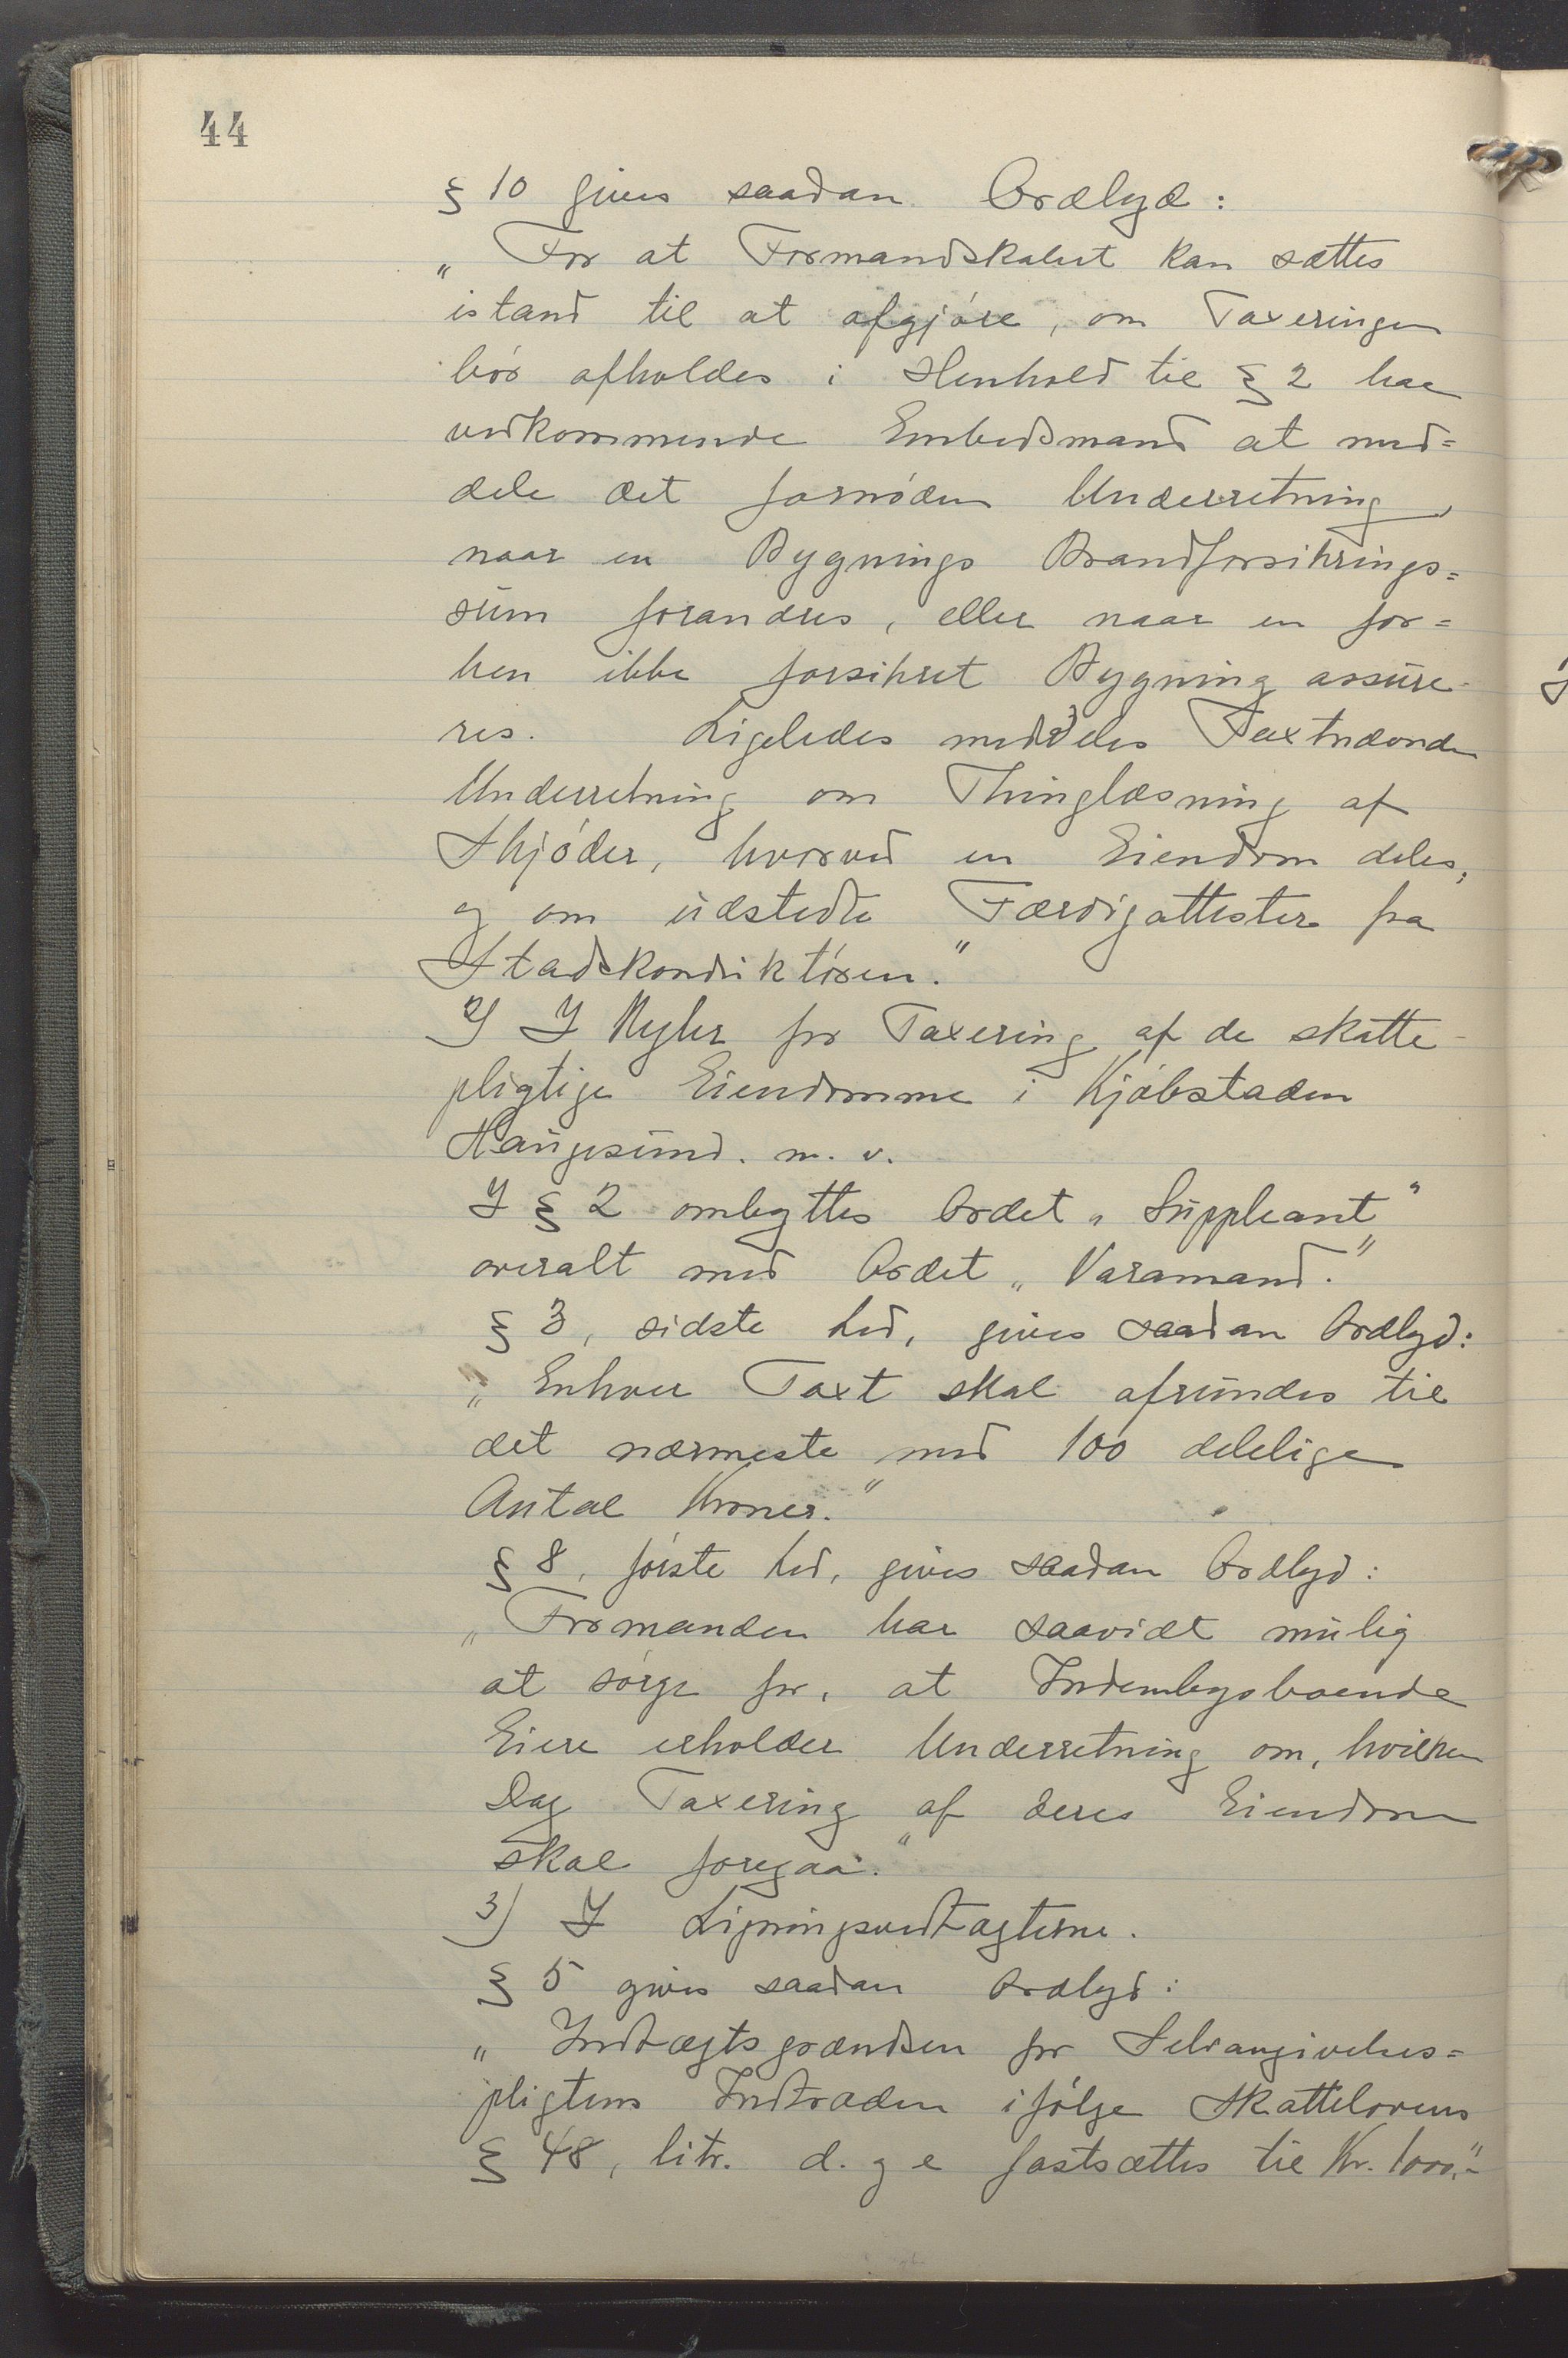 44
§ 10 gives saadan Ordlyd:
„For at Formandskabet kan sættes
istand til at afgjøre, om Taxeringen
bør afholdes i Henhold til § 2 har
vedkommende Embedsmand at med=
dele det fornødne Underretning,
naar en Bygnings Brandforsikrings=
sum forandres, eller naar en for=
hen ikke forsikret Bygning assure-
res. Ligeledes meddeles Taxtnævnden
Underretning om Thinglæsning af
Skjøder, hvorved en Eiendom deles,
og om udstedte Færdigattester fra
Stadskonduktøren."
2) I Regler for Taxering af de skatte-
pligtige Eiendomme i Kjøbstaden
Haugesund. m. v.
I § 2 ombyttes Ordet „Suppleant"
overalt med Ordet „Varamand."
§ 3, sidste Led, gives saadan Ordlyd:
„Enhver Taxt skal afrundes til
det nærmeste med 100 delelige
Antal Kroner."
§ 8, første Led, gives saadan Ordlyd:
„Formanden har saavidt mulig
at sørge for, at Indenbysboende
Eiere erholder Underretning om, hvilken
Dag Taxering af deres Eiendom
skal foregaa."
3) I Ligningsvedtægterne.
§ 5 gives saadan Ordlyd:
„Indtægtsgrændsen for Selvangivelses=
pligtens Indtræden ifølge Skattelovens
§ 48, litr. d. og e fastsættes til Kr. 1000,-"